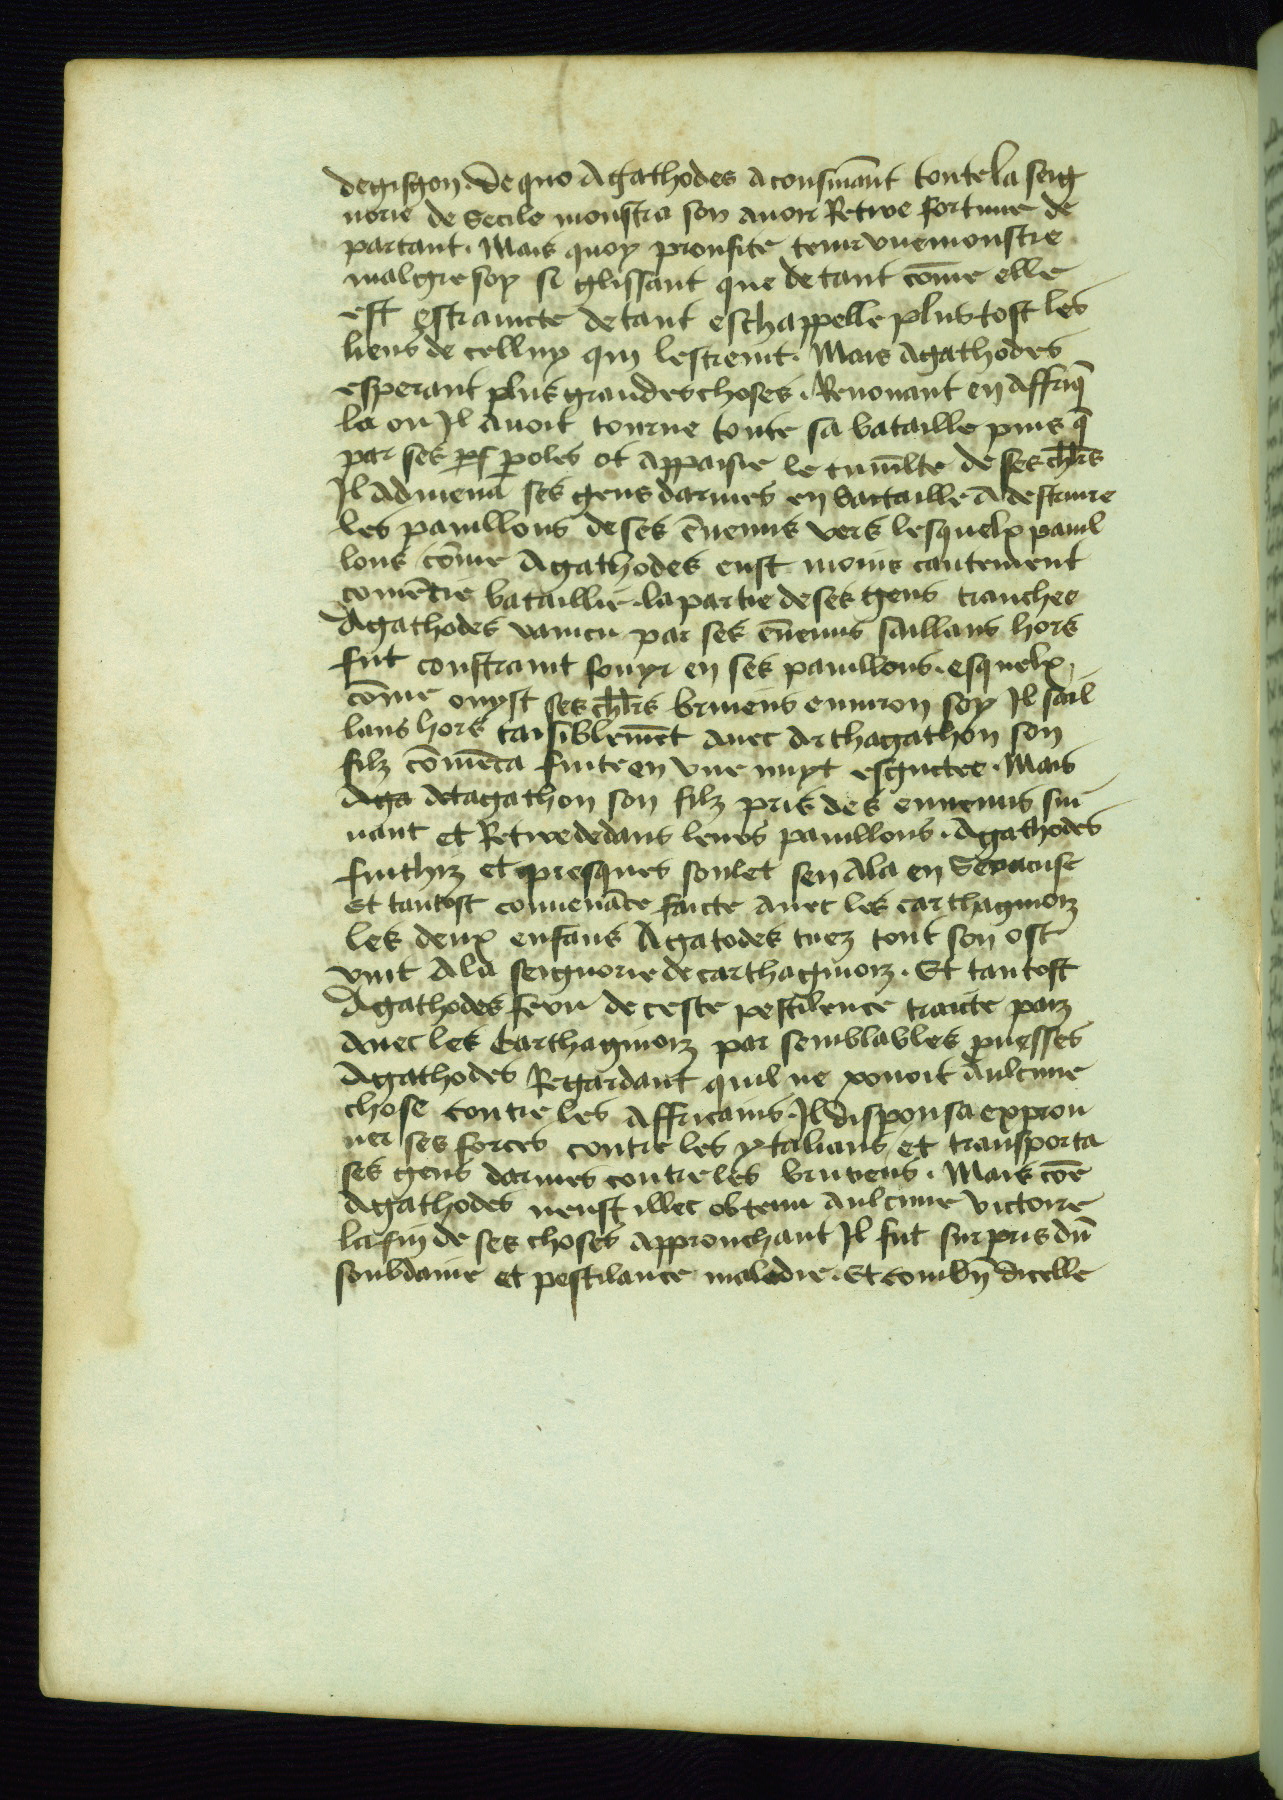 degisgon. De quo Agathodes aconsmãnt toute la seig
norie de Secile monstra son auoir Retire fortune de
partant. Mais quoy proufite tenir vne monstre
malgre soy si glissant que de tant cõme elle
est estraincte de tant eschappelle plus tost les
liens de celluy qui lestreint. Mais Agathodes
esperant plus grandes choses. Renouant en affriq̃
la ou Il auoit tourne toute sa bataille puis q̃
par ses poles ot appaisie le tumlte de ses chl̃rs
Il admena ses gens darmes en bataille A destruire
les pauillons de ses ẽnemis vers lesquelx pauil
lons cõme Agathodes eust moins cautement
comẽcie bataillie. la partie de ses gens tranchee
Agathodes vaincu par ses ẽnemis saillans hors
fut constraint fouyr en ses pauillons. esquelx
cõme ouyst ses chl̃rs bruiens enuiron soy Il sail
lans hors taisiblemẽt auec arthagathon son
filz cõmẽca fuite en vne nuyt Mais
Aga actagathon son filz pris des ennemis sui
uant et Retire dedans leurs pauillons. Agathodes
fuithiz et presques soulet sen Ala en Seracuse
Et tantost conuenãce faicte auec les carthaginoiz
les deux enfans Agatodes tuez tout son ost
vint A la seignorie de carthaginoiz. Et tantost
Agathodes feru de ceste pestilence traicte paiz
auec les Carthaginoiz par semblables
Agathodes Regardant quil ne pouoit aulcune
chose contre les Affricains. Il disponsa exprou
uer ses forces contre les ytalians et transporta
ses gens darmes contre les brutiens. Mais cõe
Agathodes neust illec obtenu aulcune victoire
la fin de ses choses approuchant Il fut surpris dũ
soubdaine et pestilance maladie. Et combñ dicelle